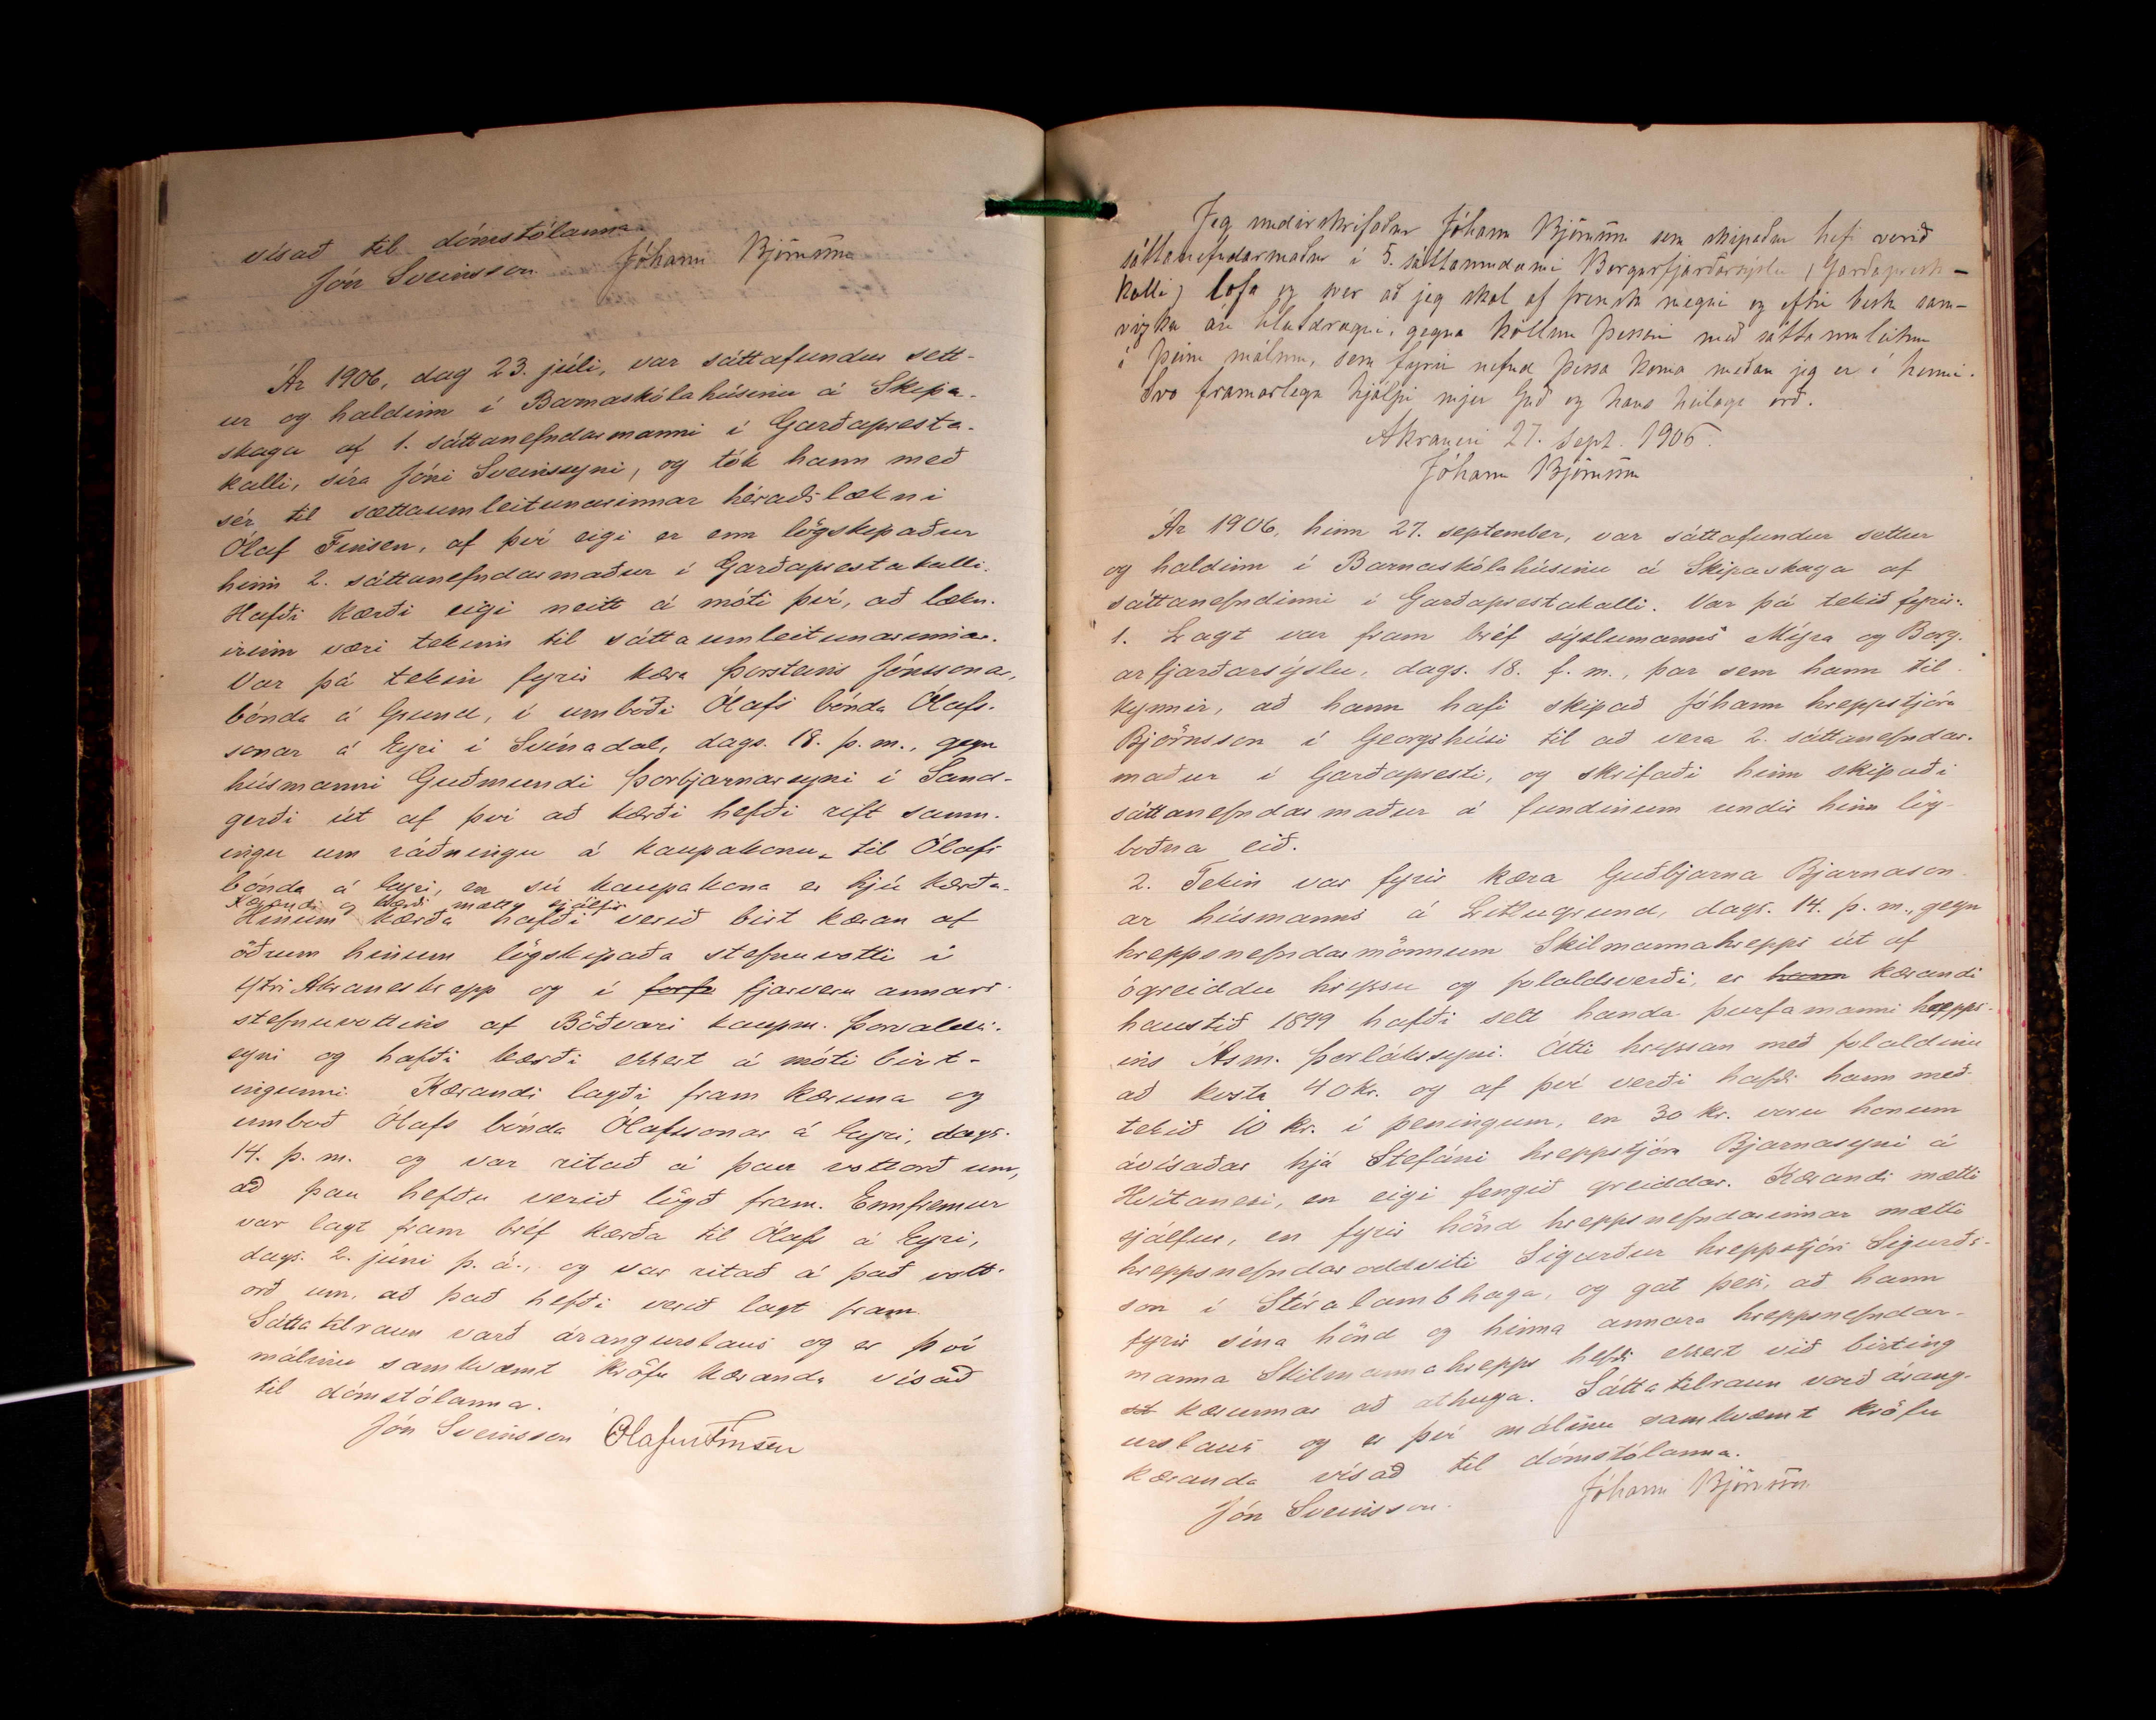 vísað til dómstólanna.
Jón Sveinsson Jóhann Björnsson
Ár 1906, dag 23. júlí, var sáttafundur sett-
ur og haldinn í Barnaskólahúsinu á Skipa-
skaga af 1. sáttanefndarmanni í Garðapresta-
kalli, síra Jóni Sveinssyni, og tók hann með
sér til sættaumleitunarinnar héraðslækni
Ólaf Finsen, af því eigi er enn lögskipaður
hinn 2. sáttanefndarmaður í Garðaprestakalli.
Hafði kærði eigi neitt á móti því, að lækn-
irinn væri tekinn til sáttaumleitunarinnar.
Var þá tekin fyrir kæra Þorsteins Jónssonar,
bónda á Grund, í umboði Ólafs bónda Ólafs-
sonar á Eyri í Svínadal, dags. 18. þ. m., gegn
húsmanni Guðmundi Þorbjarnarsyni í Sand-
gerði út af því að kærði hefði rift samn-
ingu um ráðningu á kaupakonu til Ólafs
bónda á Eyri, en sú kaupakona er hjú kærða.
Kærandi og kærði mættu sjálfir
Hinum kærða hafði verið birt kæran af
öðrum hinum lögskipaða stefnuvotti í
Ytri Akraneshrepp og í forf fjarveru annars
stefnuvottsins af Böðvari kaupm. Þorvalds-
syni og hafði kærði ekkert á móti birt-
ingunni. Kærandi lagði fram kæruna og
umboð Ólafs bónda Ólafssonar á Eyri, dags.
14. þ. m. og var ritað á þau vottorð um,
að þau hefðu verið lögð fram. Ennfremur
var lagt fram bréf kærða til Ólafs á Eyri,
dags. 2. júní þ. á., og var ritað á það vott-
orð um, að það hefði verið lagt fram.
Sáttatilraun varð árangurslaus og er því
málinu samkvæmt kröfu kæranda vísað
til dómstólanna.
Jón Sveinsson Ólafur Finsen
Jeg undirskrifaður Jóhann Björnsson sem skipaður hefi verið
sáttanefndarmaður í 5. sáttaumdæmi Borgarfjarðarsýslu (Garðaprest-
kalli) lofa og sver að jeg skal af fremsta megni og eftir bestu sam-
vizku án hlutdrægni, gegna köllun þessari með sáttaumleitun
í þeim málum, sem fyrir nefnd þessa koma meðan jeg er í henni.
Svo framarlega hjálpi mjer Guð og hans heilaga orð.
Akranesi 27. Sept. 1906.
Jóhann Björnsson
Ár 1906, hinn 27. september, var sáttafundur settur
og haldinn í Barnaskólahúsinu á Skipaskaga af
sáttanefndinni í Garðaprestakalli. Var þá tekið fyrir:
1. Lagt var fram bréf sýslumanns Mýra og Borg-
arfjarðarsýslu, dags. 18. f. m., þar sem hann til-
kynnir, að hann hafi skipað Jóhann hreppstjóra
Björnsson í Georgshúsi til að vera 2. sáttanefndar-
maður í Garðapresti, og skrifaði hinn skipaði
sáttanefndarmaður á fundinum undir hinn lög-
boðna eið.
2. Tekin var fyrir kæra Guðbjarna Bjarnason-
ar húsmanns á Litlugrund, dags. 14. þ. m., gegn
hreppsnefndarmönnum Skilmannahrepps út af
ógreiddu hryssu og folaldsverði, er hann kærandi
haustið 1899 hafði selt handa þurfamanni hrepps-
ins Ásm. Þorlákssyni. Átti hryssan með folaldinu
að kosta 40 kr. og af því verði hafði hann með-
tekið 10 kr. í peningum, en 30 kr. voru honum
ávísaðar hjá Stefáni hreppstjóra Bjarnasyni á
Hvítanesi, en eigi fengið greiddar. Kærandi mætti
sjálfur, en fyrir hönd hreppsnefndarinnar mætti
hreppsnefndaroddviti Sigurður hreppstjóri Sigurðs-
son í Stóralambhaga, og gat þess, að hann
fyrir sína hönd og hinna annara hreppsnefndar-
manna Skilmannahrepps hefði ekkert við birting
kærunnar að athuga. Sáttatilraun varð árang-
urslaus og er því málinu samkvæmt kröfu
kæranda vísað til dómstólanna.
Jón Sveinsson. Jóhann Björnsson